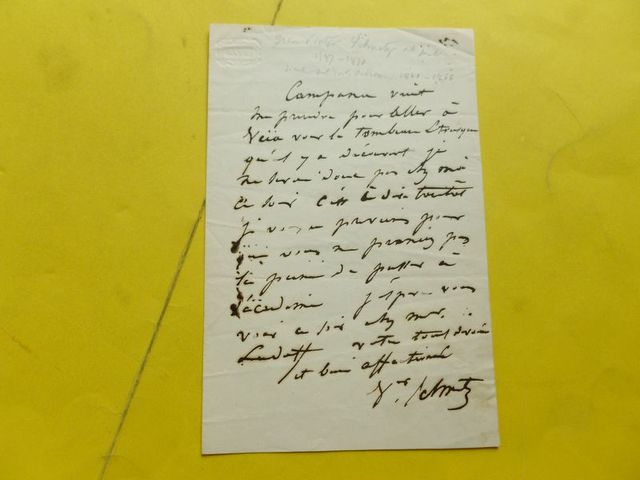 Jean Victor Schnetz
1787-1870
1841-1866
Campana vient
me prendre pour aller à
Veïo voir le tombeau Etrusque
qu'il y a découvert je
ne serai donc pas chez moi
ce soir c'est à dire tantôt
je vous en préviens pour
que vous ne preniez pas
la peine de passer à
l'académie j'espère vous
voir ce soir chez mr.
votre tout dévoué
et bien affectionné
Vor Schnetz